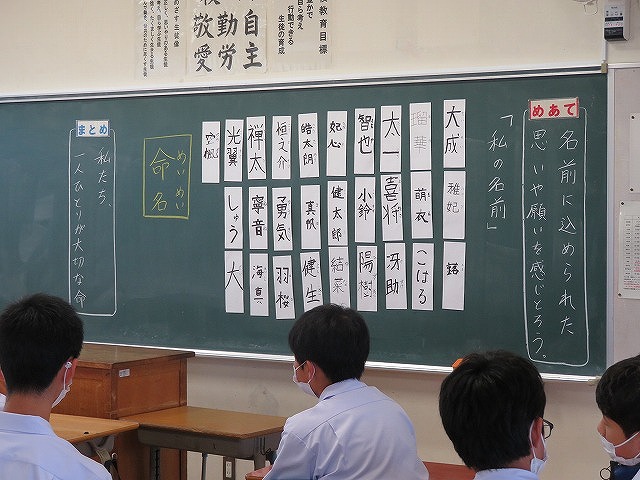 教育目標
自ら考え
行動できる
生徒の育成
自主
勤労
敬愛
めあて
名前に込められた
思いや願いを感じとろう。
「私の名前」
大成
雅妃
銘
瑠華
萌衣
こはる
太一
喜将
冴助
智也
小鈴
陽樹
妃心
健太郎
結菜
皓太朗
真帆
健生
恒之介
勇気
羽桜
禅太
寧音
海真
光翼
しゅう
大
命名
めいめい
まとめ
私たち、
一人ひとりが大切な命